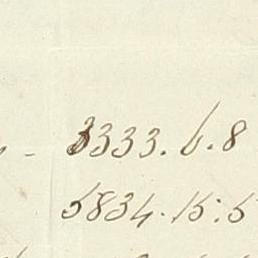 3333. 6. 8
5834. 15: 5